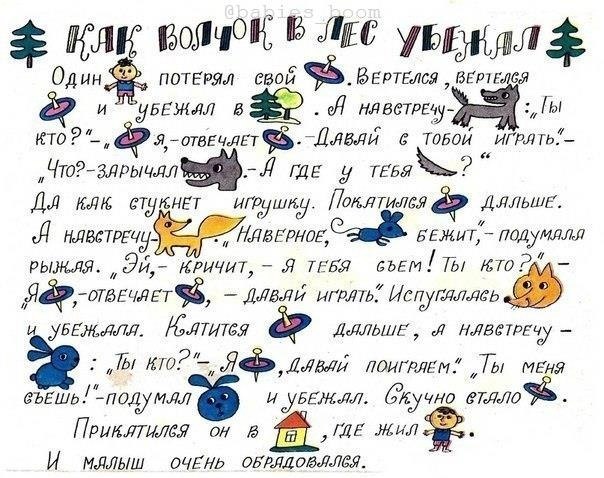 @babies_boom
КАК ВОЛЧОК В ЛЕС УБЕЖАЛ
ОДИН ПОТЕРЯЛ СВОЙ . ВЕРТЕЛСЯ, ВЕРТЕЛСЯ
И УБЕЖАЛ В . А НАВСТРЕЧУ- : „ТЫ
КТО?"-„ Я,-ОТВЕЧАЕТ .-ДАВАЙ С ТОБОЙ ИГРАТЬ."-
„ЧТО?-ЗАРЫЧАЛ .-А ГДЕ У ТЕБЯ ?"
ДА КАК СТУКНЕТ ИГРУШКУ. ПОКАТИЛСЯ ДАЛЬШЕ.
А НАВСТРЕЧУ- . „НАВЕРНОЕ, БЕЖИТ",- ПОДУМАЛА
РЫЖАЯ. „ЭЙ,- КРИЧИТ, - Я ТЕБЯ СЪЕМ! ТЫ КТО?"-
„Я ,-ОТВЕЧАЕТ , - ДАВАЙ ИГРАТЬ." ИСПУГАЛАСЬ
И УБЕЖАЛА. КАТИТСЯ ДАЛЬШЕ, А НАВСТРЕЧУ -
: „ТЫ КТО?"-„Я ,ДАВАЙ ПОИГРАЕМ." „ТЫ МЕНЯ
СЪЕШЬ!"-ПОДУМАЛ И УБЕЖАЛ. СКУЧНО СТАЛО .
ПРИКАТИЛСЯ ОН В , ГДЕ ЖИЛ .
И МАЛЫШ ОЧЕНЬ ОБРАДОВАЛСЯ.